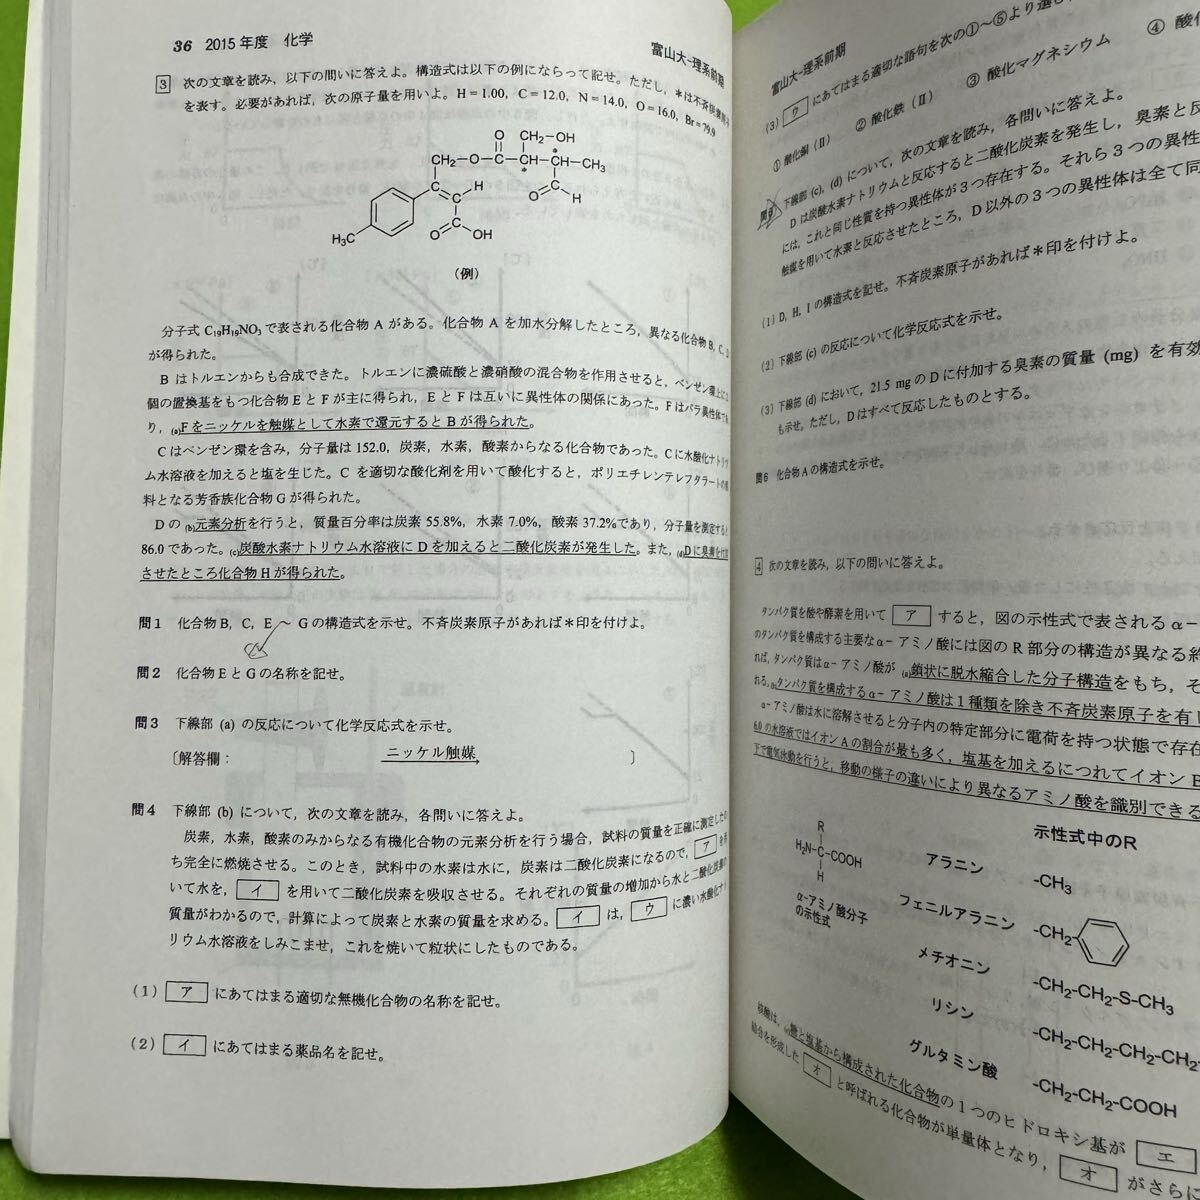 36 2015年度 化学
富山大-理系前期
3 次の文章を読み，以下の問いに答えよ。構造式は以下の例にならって記せ。ただし，＊は不斉炭素原子
を表す。必要があれば，次の原子量を用いよ。H＝1.00，C＝12.0，N＝14.0，O＝16.0，Br＝79.9
O
CH₂-OH
CH₂-O-C
*
*
CH₃
C
H
O
H
H₃C
O
OH
（例）
分子式 C₁₉H₁₉NO₃で表される化合物 A がある。化合物 A を加水分解したところ，異なる化合物 B，C，
が得られた。
B はトルエンからも合成できた。トルエンに濃硫酸と濃硝酸の混合物を作用させると，ベンゼン環上に
個の置換基をもつ化合物 E と F が主に得られ，E と F は互いに異性体の関係にあった。F はパラ異性体であ
り，(a)F をニッケルを触媒として水素で還元すると B が得られた。
C はベンゼン環を含み，分子量は 152.0，炭素，水素，酸素からなる化合物であった。C に水酸化ナトリウ
ム水溶液を加えると塩を生じた。C を適切な酸化剤を用いて酸化すると，ポリエチレンテレフタラートの原
料となる芳香族化合物 G が得られた。
D の (b)元素分析を行うと，質量百分率は炭素 55.8%，水素 7.0%，酸素 37.2%であり，分子量を測定すると
86.0 であった。(c)炭酸水素ナトリウム水溶液に D を加えると二酸化炭素が発生した。また，(d)D に臭素を付加
させたところ化合物 H が得られた。
問1 化合物 B，C，E～G の構造式を示せ。不斉炭素原子があれば＊印を付けよ。
問2 化合物 E と G の名称を記せ。
問3 下線部 (a) の反応について化学反応式を示せ。
〔解答欄： ニッケル触媒 〕
問4 下線部 (b) について，次の文章を読み，各問いに答えよ。
炭素，水素，酸素のみからなる有機化合物の元素分析を行う場合，試料の質量を正確に測定したの
ち完全に燃焼させる。このとき，試料中の水素は水に，炭素は二酸化炭素になるので，ア を用
いて水を，イ を用いて二酸化炭素を吸収させる。それぞれの質量の増加から水と二酸化炭素の
質量がわかるので，計算によって炭素と水素の質量を求める。イ は，ウ に濃い水酸化ナト
リウム水溶液をしみこませ，これを焼いて粒状にしたものである。
(1) ア にあてはまる適切な無機化合物の名称を記せ。
(2) イ にあてはまる薬品名を記せ。
富山大-理系前期
(3) ウ にあてはまる適切な語句を次の①～⑤より選
①酸化銅 (Ⅱ) ② 酸化鉄 (Ⅱ) ③ 酸化マグネシウム ④ 酸化
問5 下線部 (c)，(d) について，次の文章を読み，各問いに答えよ。
D は炭酸水素ナトリウムと反応すると二酸化炭素を発生し，臭素と反
には，これと同じ性質を持つ異性体が 3 つ存在する。それら 3 つの異性
触媒を用いて水素と反応させたところ，D 以外の 3 つの異性体は全て同
(1) D，H，I の構造式を記せ。不斉炭素原子があれば＊印を付けよ。
(2) 下線部 (c) の反応について化学反応式を示せ。
(3) 下線部 (d) において，21.5 mg の D に付加する臭素の質量 (mg) を有効
も示せ。ただし，D はすべて反応したものとする。
問6 化合物 A の構造式を示せ。
4 次の文章を読み，以下の問いに答えよ。
タンパク質を酸や酵素を用いて ア すると，図の示性式で表される α－
のタンパク質を構成する主要な α－アミノ酸には図の R 部分の構造が異なる約
れば，タンパク質は α－アミノ酸が (a)鎖状に脱水縮合した分子構造をもち，そ
れる。(b)タンパク質を構成する α－アミノ酸は 1 種類を除き不斉炭素原子を有し
α－アミノ酸は水に溶解させると分子内の特定部分に電荷を持つ状態で存在
6.0 の水溶液ではイオン A の割合が最も多く，塩基を加えるにつれてイオン B
下で電気泳動を行うと，移動の様子の違いにより異なるアミノ酸を識別できる
R
H₂N-C-COOH
H
α-アミノ酸分子
の示性式
示性式中のR
アラニン -CH₃
フェニルアラニン -CH₂-
メチオニン -CH₂-CH₂-S-CH₃
リシン -CH₂-CH₂-CH₂-CH₂-
グルタミン酸 -CH₂-CH₂-COOH
核酸は，糖と塩基から構成された化合物の 1 つのヒドロキシ基が エ
結合を形成した オ と呼ばれる化合物が単量体となり，オ がさらに